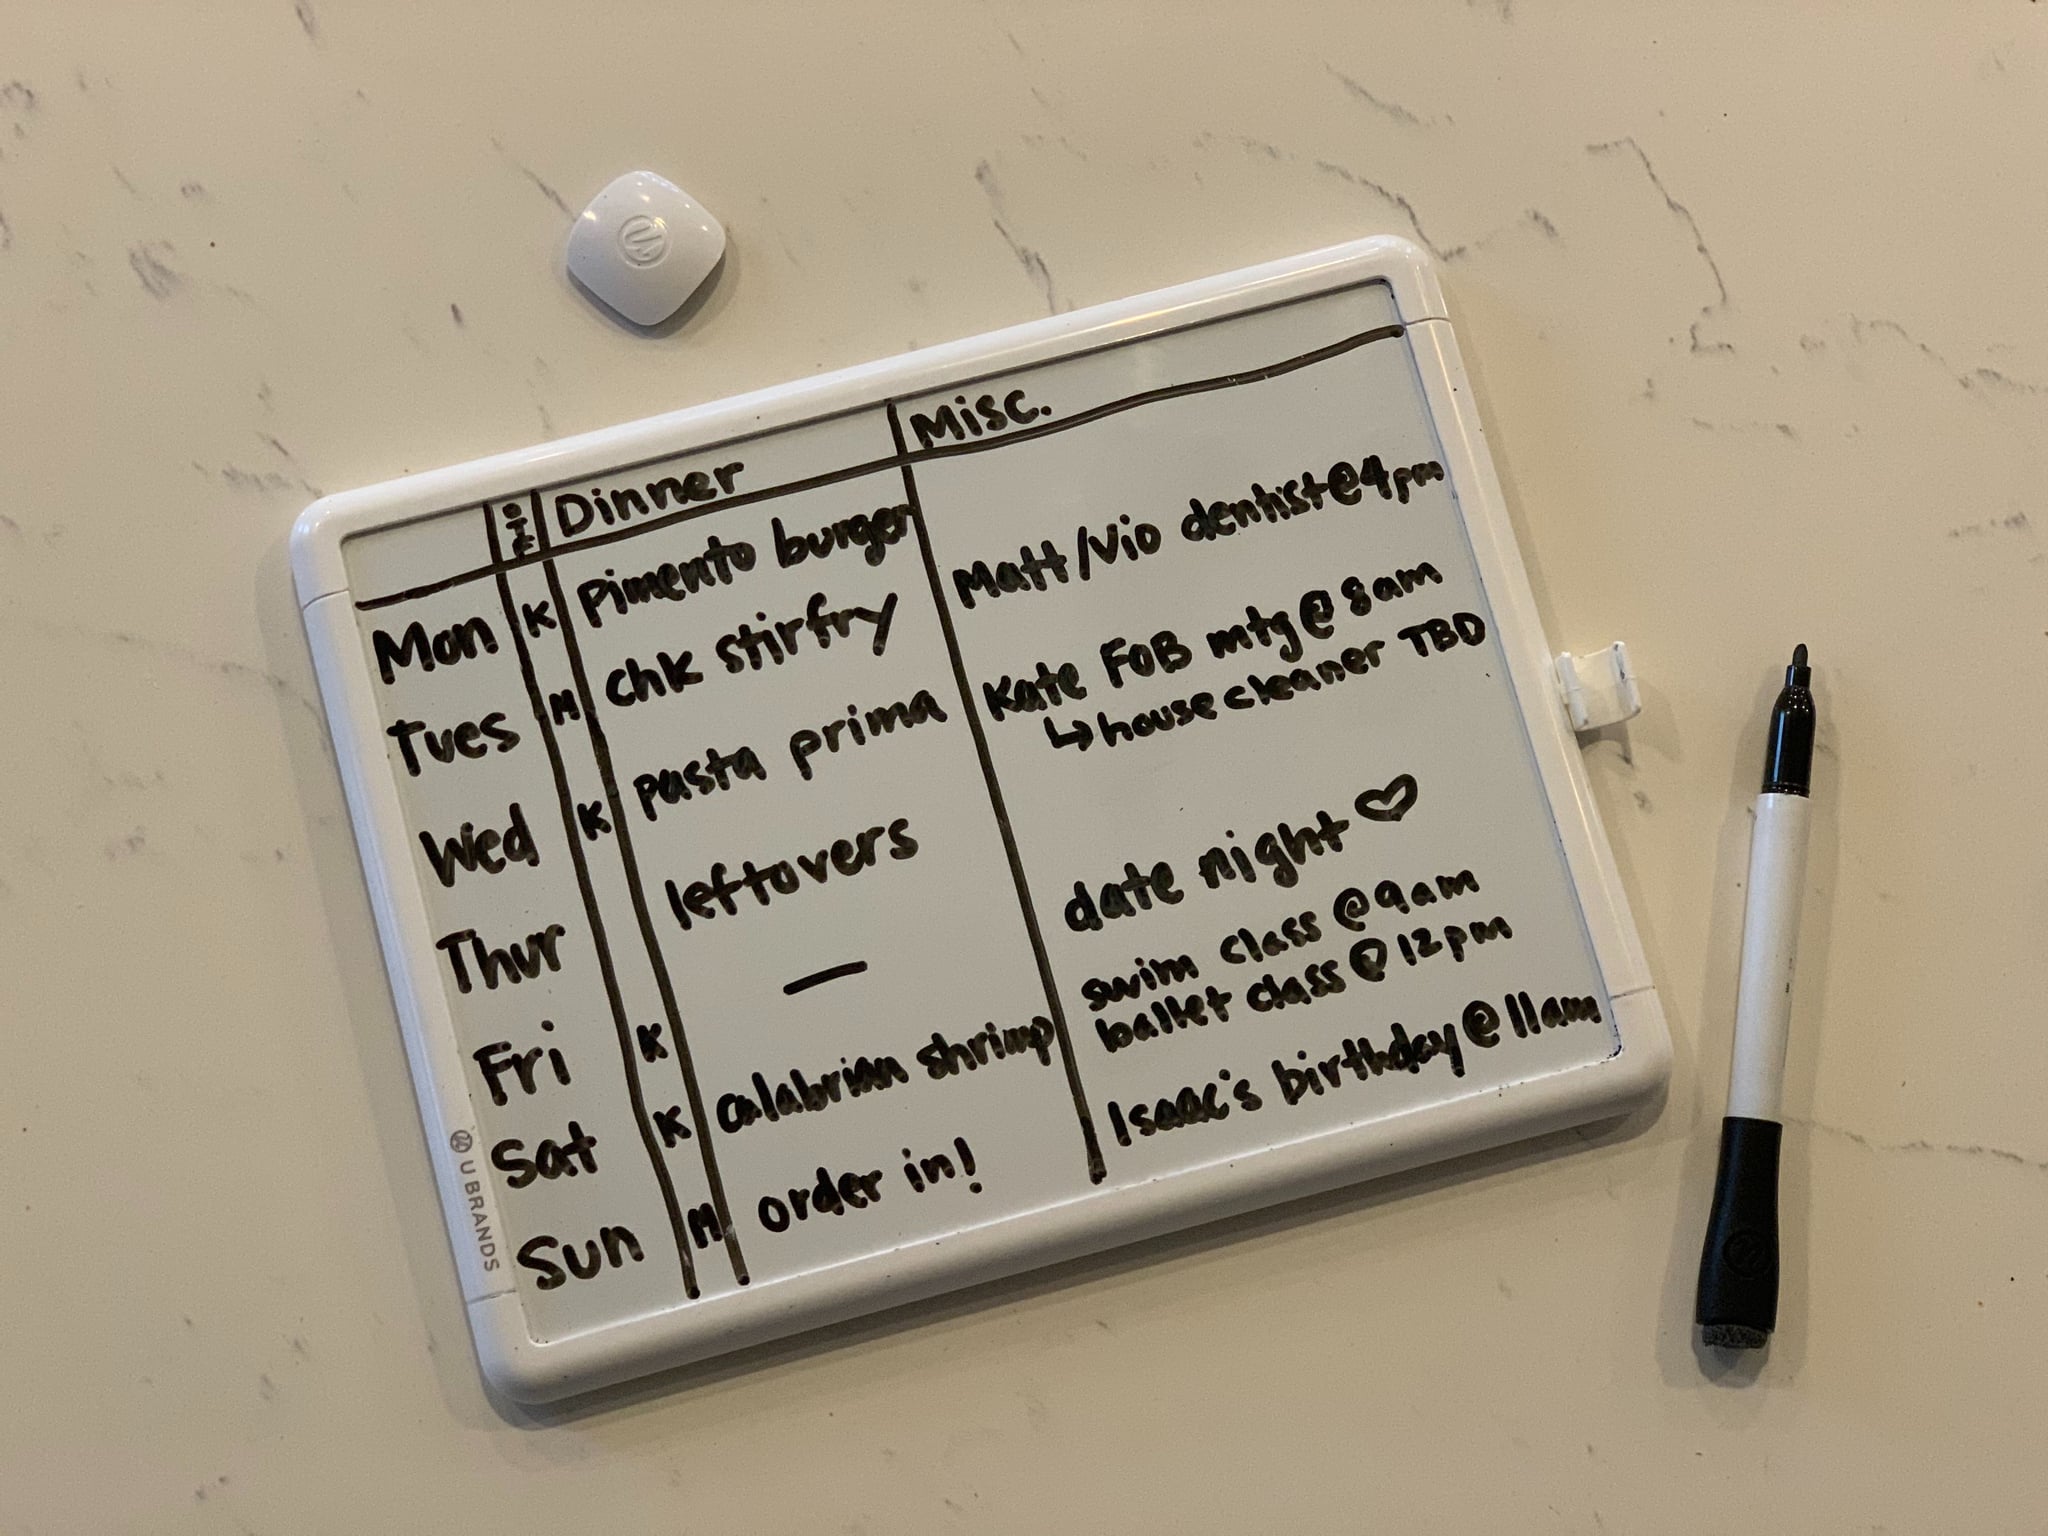 Dinner Misc.
Mon K Pimento burger
Tues M chk stirfry Matt/Vio dentist @ 4pm
Wed K pasta prima Kate FOB mtg @ 8am
↳ house cleaner TBD
Thur leftovers
Fri K — date night ♡
Sat K calabrian shrimp swim class @ 9am
ballet class @ 12pm
Sun M order in! Isaac's birthday @ 11am
U BRANDS